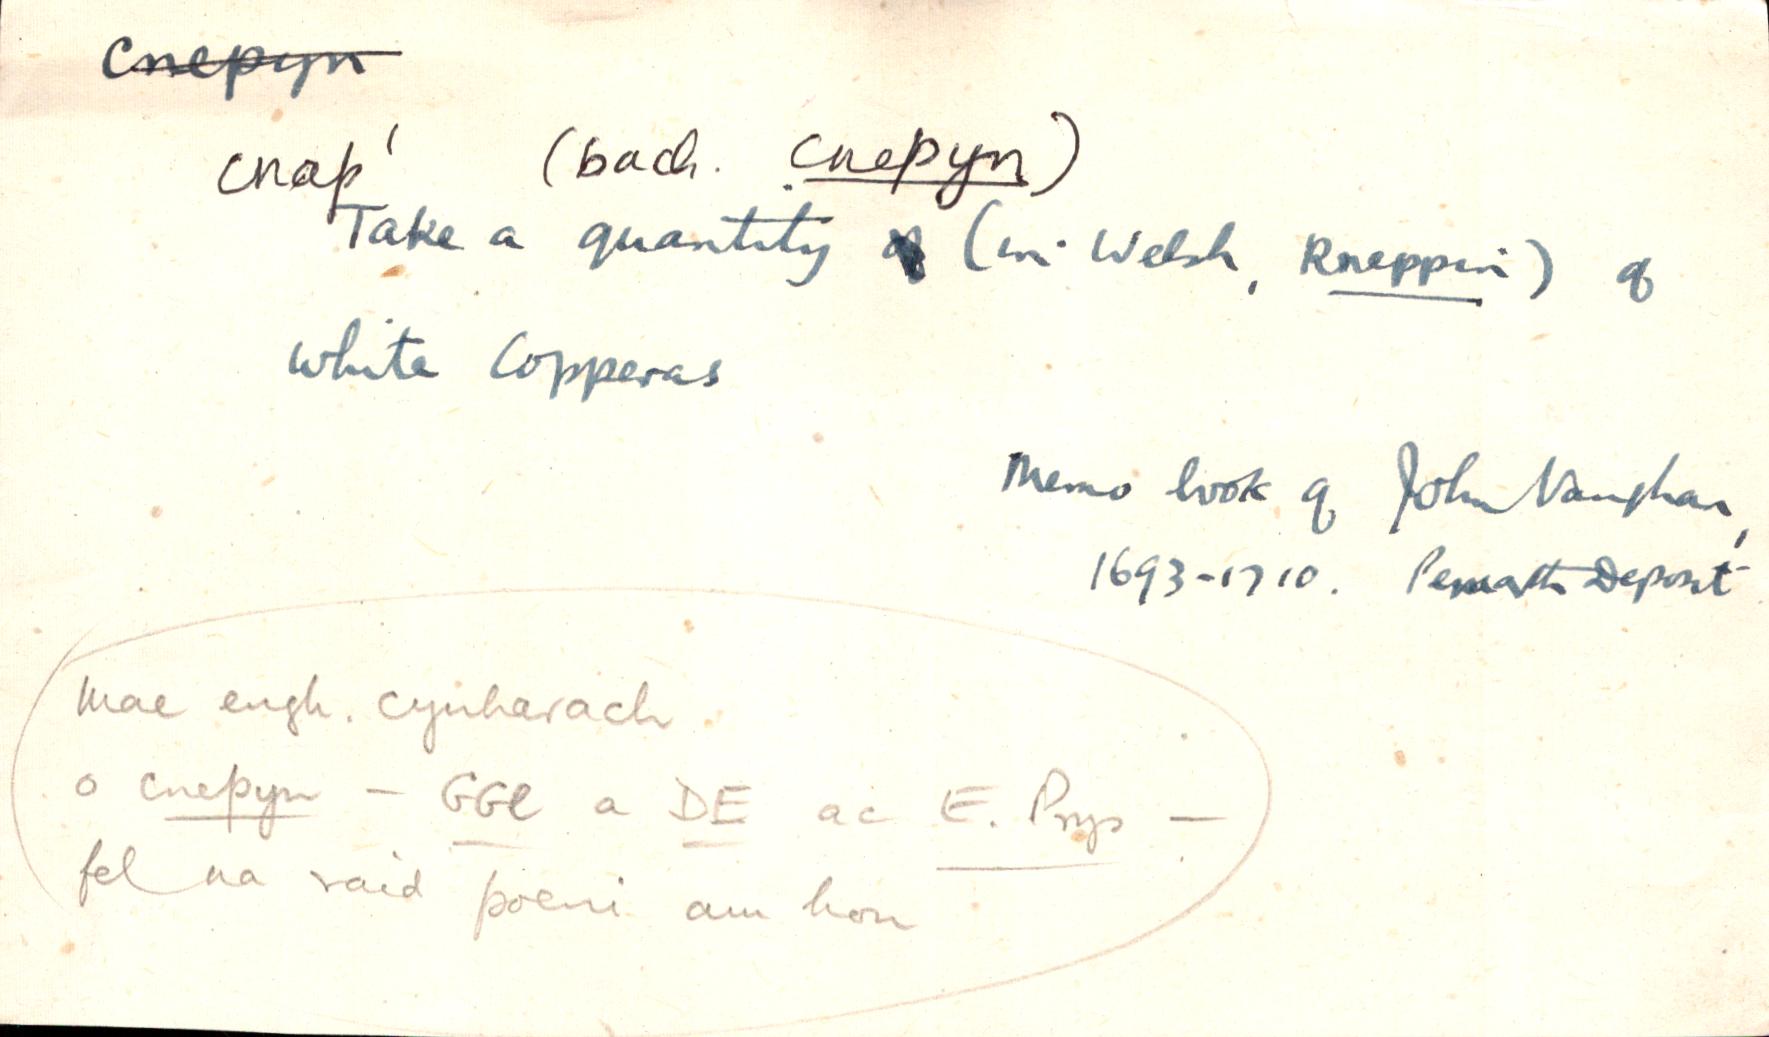 Cnepyn
cnap¹ (bach. cnepyn)
Take a quantity (in Welsh, Kneppin) of
white Copperas
Memo book of John Vaughan,
1693-1710. Penarth Deposit
Mae engh. cynharach
o cnepyn – GGl a DE ac E. Prys –
fel na raid poeni am hon